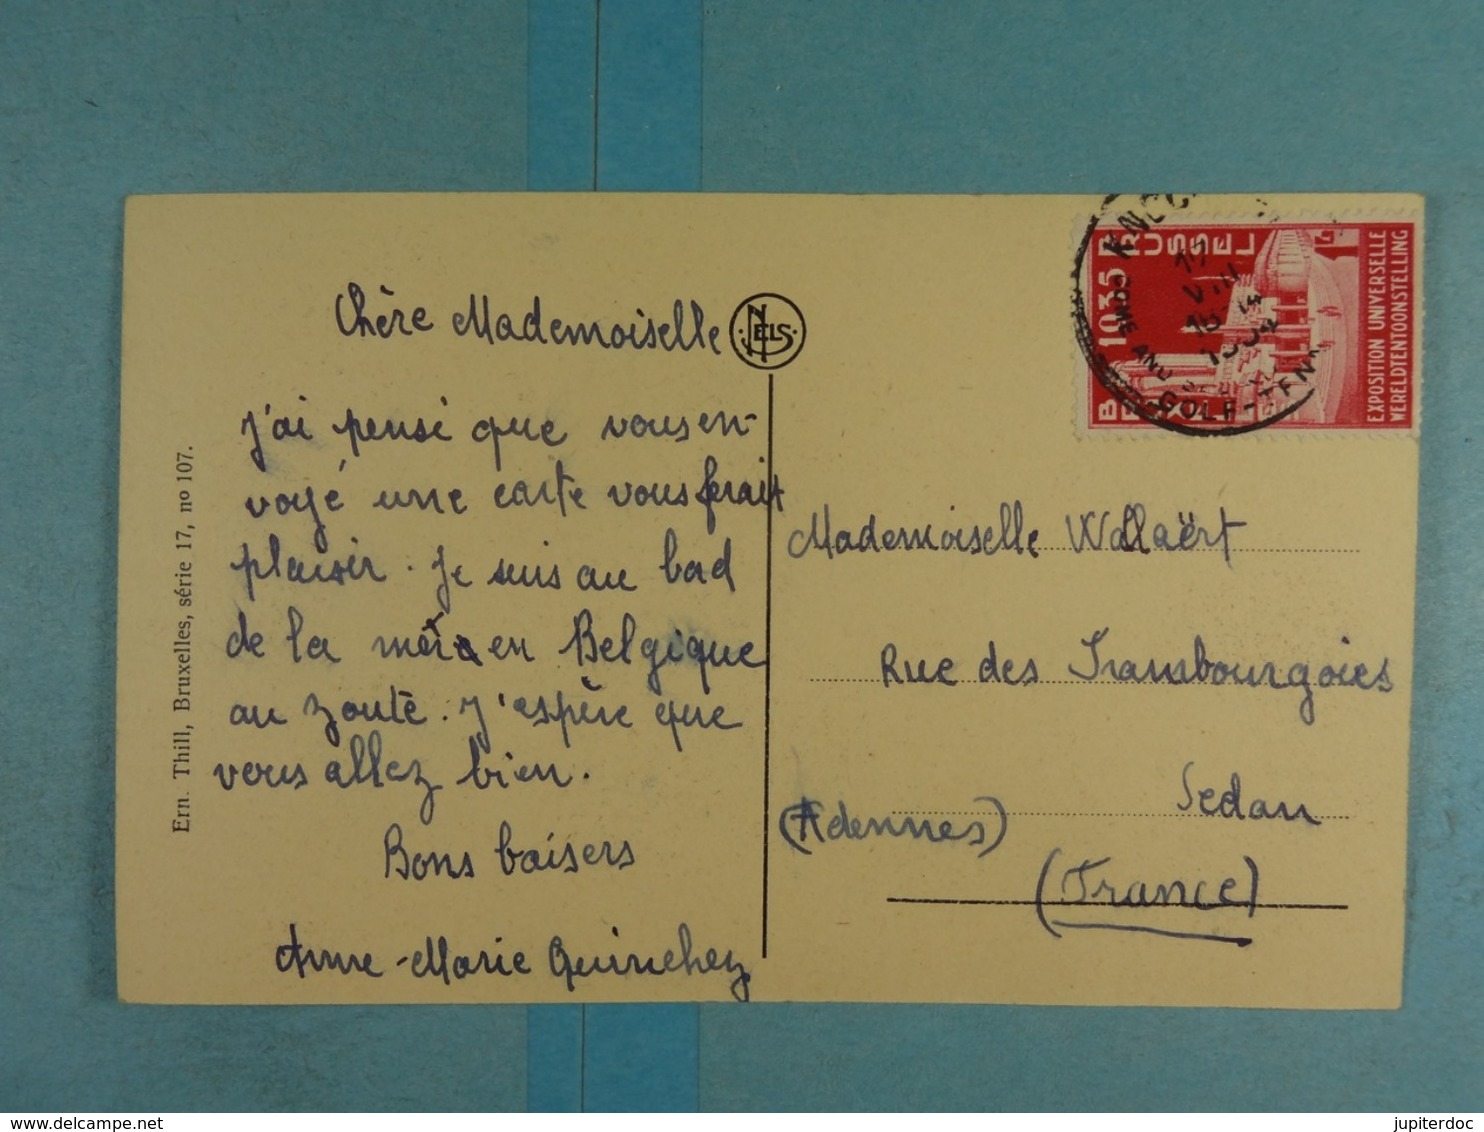 Chère Mademoiselle
J'ai pensé que vous en-
voyé une carte vous ferait
plaisir. Je suis au bad
de la mer en Belgique
au Zoute. J'espère que
vous allez bien.
Bons baisers
Anne-Marie Quinchez
NELS
Ern. Thill, Bruxelles, série 17, nº 107.
BRUSSEL
1935
EXPOSITION UNIVERSELLE
WERELDTENTOONSTELLING
1F
17
VIII
COME AND
GOLF-TENN
Mademoiselle Wallaërt
Rue des Frambourgoies
Sedan
(Adennes)
(France)
delcampe.net
jupiterdoc